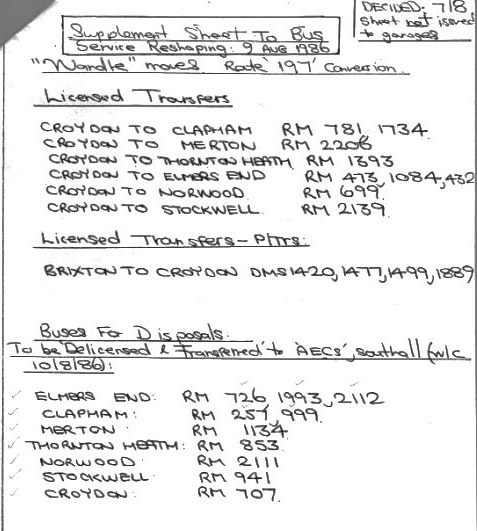 DECIDED: 7/8
Sheet not issued
to garages
Supplement Sheet To Bus
Service Reshaping: 9 AUG 1986
"Wandle" moves Route '197' Conversion.
Licensed Transfers
CROYDON TO CLAPHAM RM 781, 1734
CROYDON TO MERTON RM 2206
CROYDON TO THORNTON HEATH RM 1393
CROYDON TO ELMERS END RM 473, 1084, 432
CROYDON TO NORWOOD RM 699
CROYDON TO STOCKWELL RM 2139
Licensed Transfers - P/Trs:
BRIXTON TO CROYDON DMS 1420, 1477, 1499, 1889
Buses For Disposals:
To be Delicensed & 'Transferred' to 'AECS', Southall (w/c
10/8/86):
ELMERS END: RM 726, 1993, 2112
CLAPHAM: RM 257, 999.
MERTON: RM 1134
THORNTON HEATH: RM 853.
NORWOOD: RM 2111
STOCKWELL: RM 941
CROYDON: RM 707.